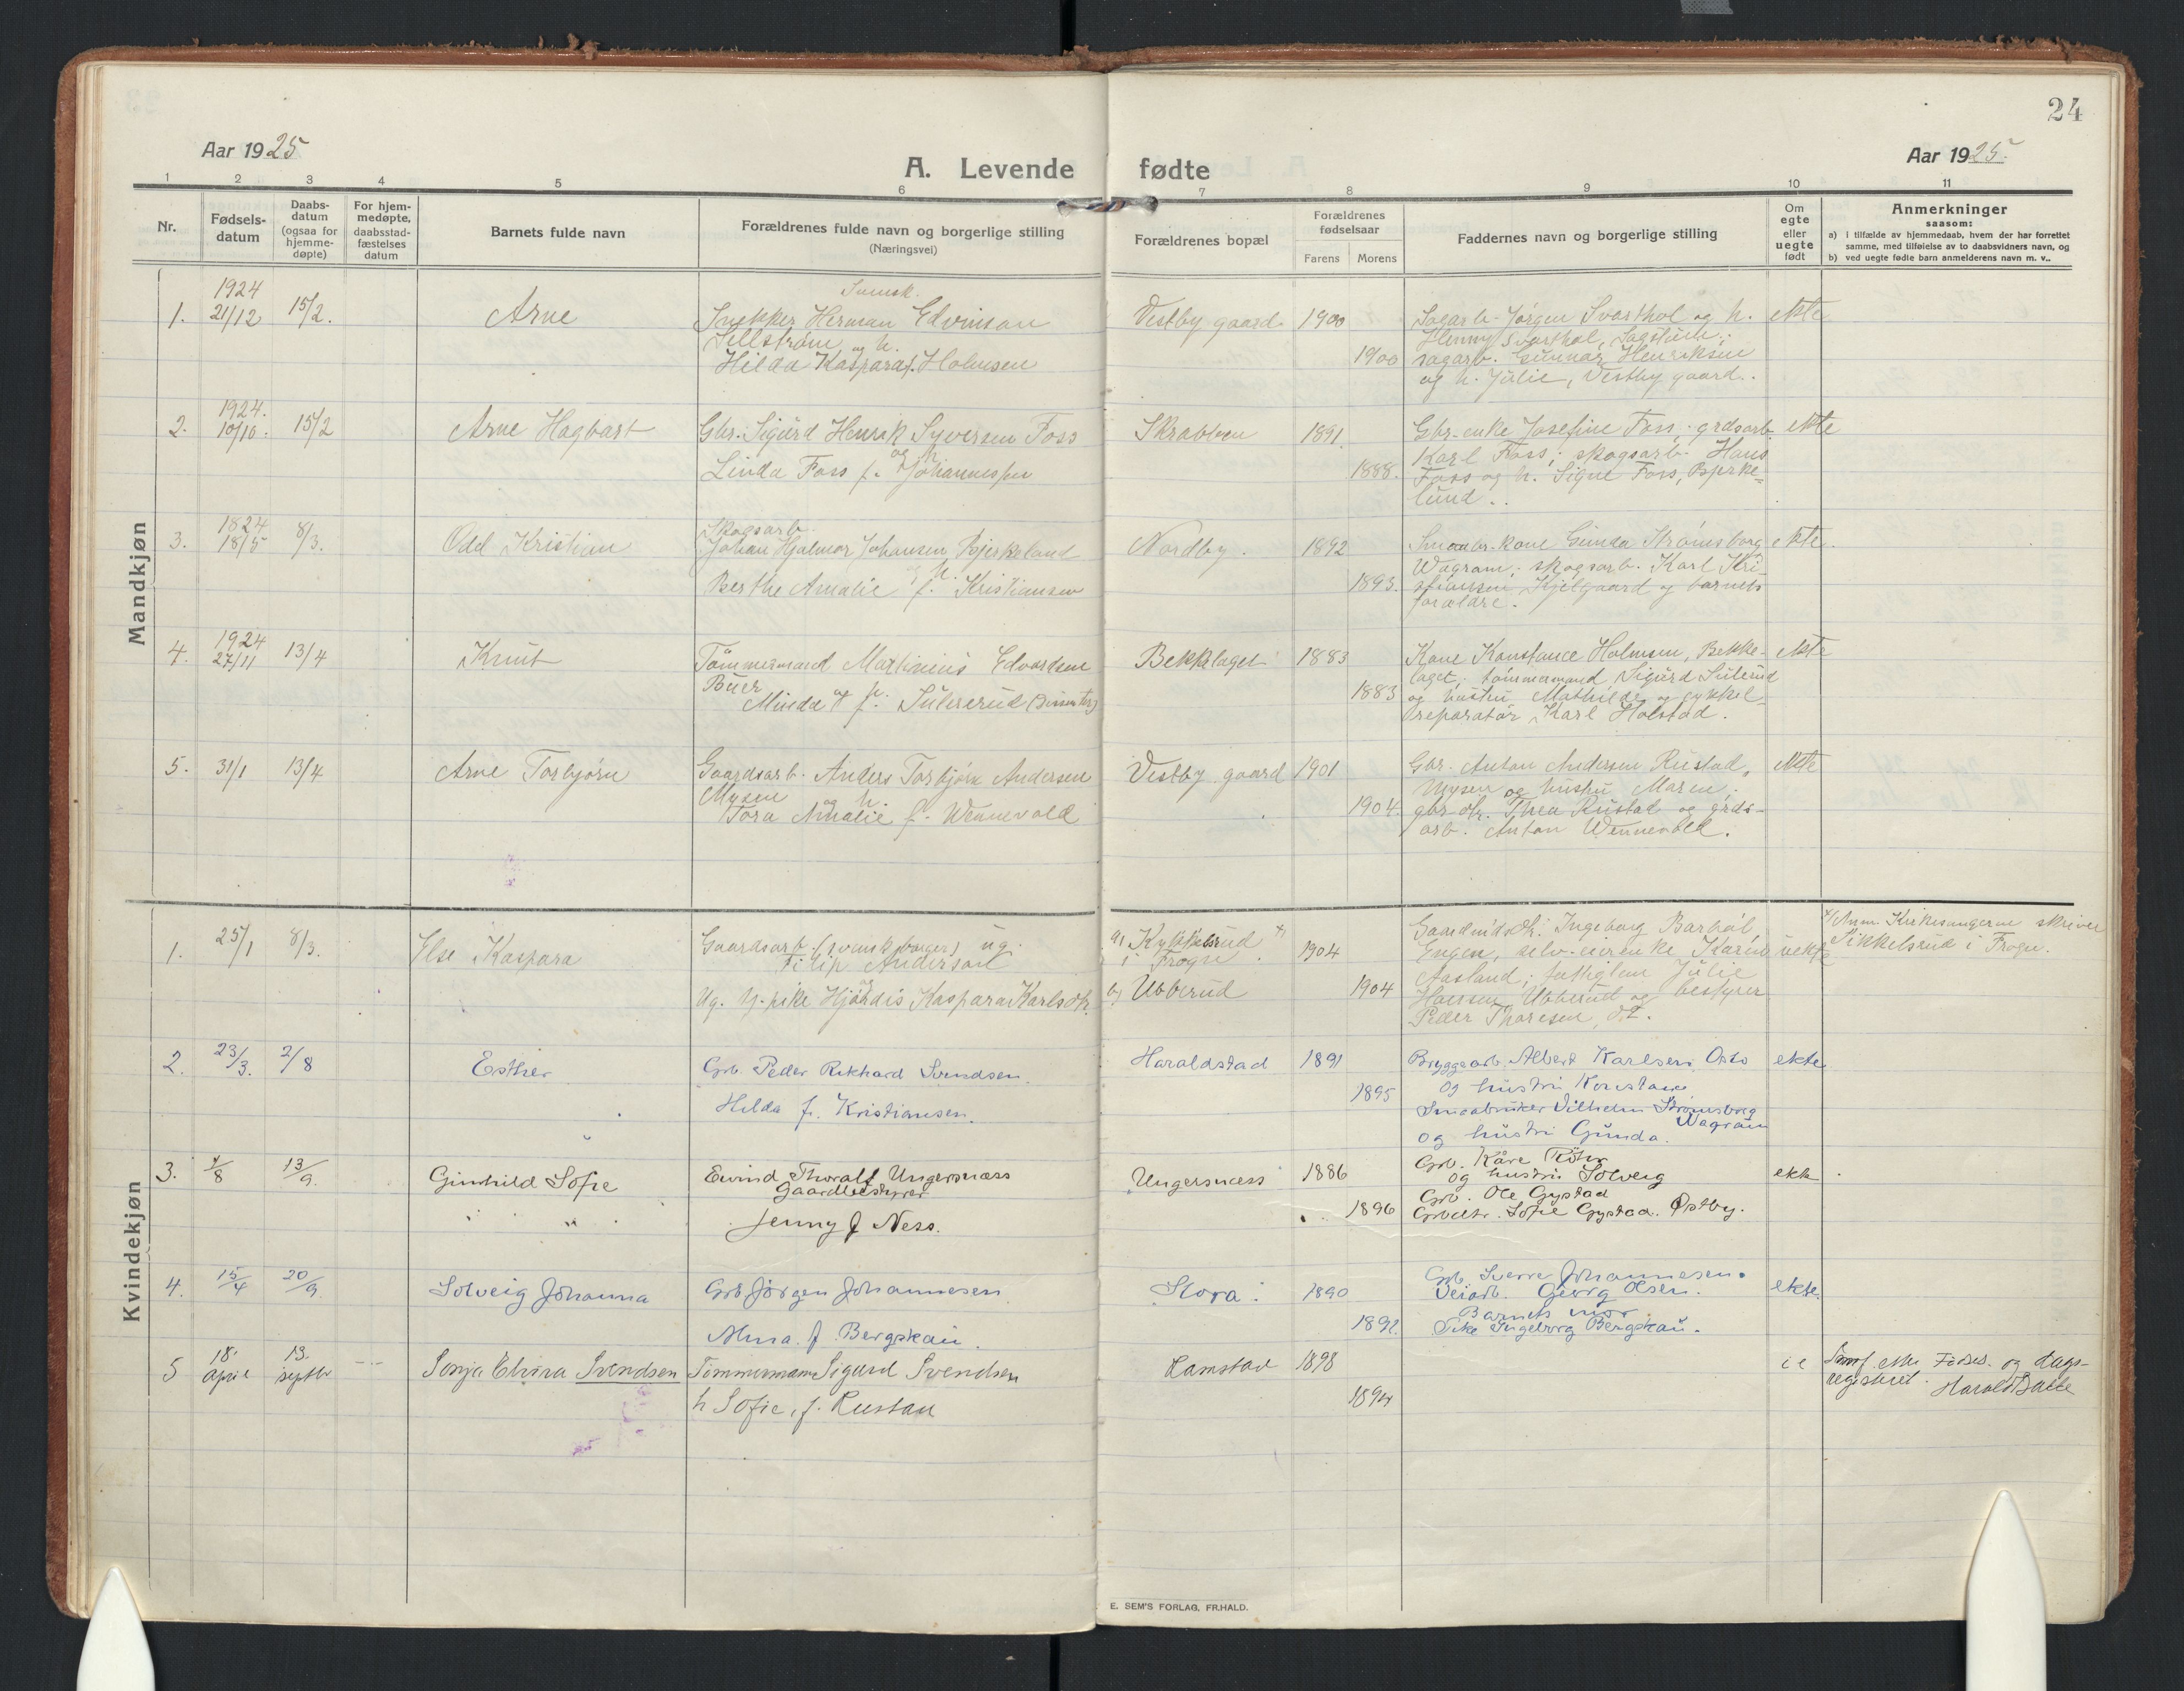 24
Aar 1925
Aar 1925.
A. Levende fødte
1 2 3 4 5 6 7 8 9 10 11
Nr.
Fødsels-
datum
Daabs-
datum
(ogsaa for
hjemme-
døpte)
For hjem-
medøpte,
daabsstad-
fæstelses
datum
Barnets fulde navn
Forældrenes fulde navn og borgerlige stilling
(Næringsvei)
Forældrenes bopæl
Forældrenes
fødselsaar
Farens Morens
Faddernes navn og borgerlige stilling
Om
egte
eller
uegte
født
Anmerkninger
saasom:
a) i tilfælde av hjemmedaab, hvem der har forrettet
samme, med tilføielse av to daabsvidners navn, og
b) ved uegte fødte barn anmelderens navn m. v..
Mandkjøn
1. 1924 21/12 15/2. Arne
Svensk.
Snekker Herman Edvinson
Sellström og h.
Hilda Kaspara f. Holmsen
Vestby gaard 1900
1900
Sagarb. Jørgen Svarthol og h.
Henny Svarthol, Sagstuen;
sagarb. Gunnar Henriksen
og h. Julie, Vestby gaard.
ekte
2. 1924. 10/10. 15/2 Arne Hagbart
Gbr. Sigurd Henrik Syversen Foss
og h.
Linda Foss f. Johannessen
Skrabben 1891.
1888.
Gbr.-enke Josefine Foss; grdsarb.
Karl Foss; skogsarb. Hans
Foss og h. Signe Foss, Bjerke-
lund.
ekte
3. 1824 18/5 8/3. Odd Kristian
Skogsarb.
Johan Hjalmar Johansen Bjerkeland
og h.
Berthe Amalie f. Kristiansen
Nordby. 1892
1893.
Smaabr. kone Gunda Strømsborg
Wagram; skogsarb. Karl Kri-
stiansen Kjelgaard og barnets
forældre.
ekte.
4. 1924 27/11 13/4 Knut
Tømmermand Martinius Edvardsen
Buer
og h.
Minda f. Sulerud (Dissenter)
Bekklaget 1883
1883
Kone Konstance Holmsen, Bekke-
laget; tømmermand Sigurd Sulerud
og hustru Mathilde og cykkel-
reparatør Karl Holstad.
ekte
5. 31/1 13/4 Arne Torbjørn
Gaardsarb. Anders Torbjørn Andersen
Mysen
og h.
Tora Amalie f. Wennevold
Vestby gaard 1901
1904.
Gbr. Anton Andersen Rustad,
Mysen og hustru Maren;
gbr. dtr. Thea Rustad og grds-
arb. Anton Wennevold.
ekte
Kvindekjøn
1. 25/1 8/3. Else Kaspara
Gaardsarb. (svensk borger) ug.
Filip Anderson
og
Ug. tj.-pike Hjørdis Kaspara Karlsdtr.
a) Kykkelsrud x)
i Frogn. 1904
b) Ubberud 1904
Gaardmdsdtr. Ingeborg Barbøl
Engen, selv-eierenke Karen
Aasland; fattiglem Julie
Hansen Ubberud og bestyrer
Peder Thoresen, d.s.
uekte
x) Anm. Kirkesangeren skriver
Sikkelsrud i Frogn.
2. 23/3. 2/8 Esther
Grb. Peder Rikhard Svendsen.
Hilda f. Kristiansen.
Haraldstad 1891
1895
Bryggearb. Albert Karlsen, Oslo
og hustru Konstance
Smaabruker Vilhelm Strømsborg
Wagram
og hustru Gunda.
ekte
3. 4/8 13/9. Gunhild Sofie
Eivind Thoralf Ungersnæss
Gaardbestyrer
Jenny f Ness.
Ungersnæss 1886
1896
Grb. Kåre Röhr
og hustru Solveig
Grb. Ole Gystad
Grbdtr. Sofie Gystad. Østby.
ekte
4. 15/4 20/9. Solveig Johanna
Grb Jørgen Johannesen
Alma. f. Bergskau.
Kora. 1890
1892.
Grb. Sverre Johannesen.
Veiarb. Georg Olsen.
Barnets mor
Pike Ingeborg Bergskau.
ekte.
5 18. april 13. septbr Sonja Elvira Svendsen
Tømmermann Sigurd Svendsen
h Sofie, f. Rustad
Ramstad 1898
1894
i e
Innf. etter Fødsels- og daps-
registeret. Harald Bakke
E. SEM'S FORLAG, FR.HALD.